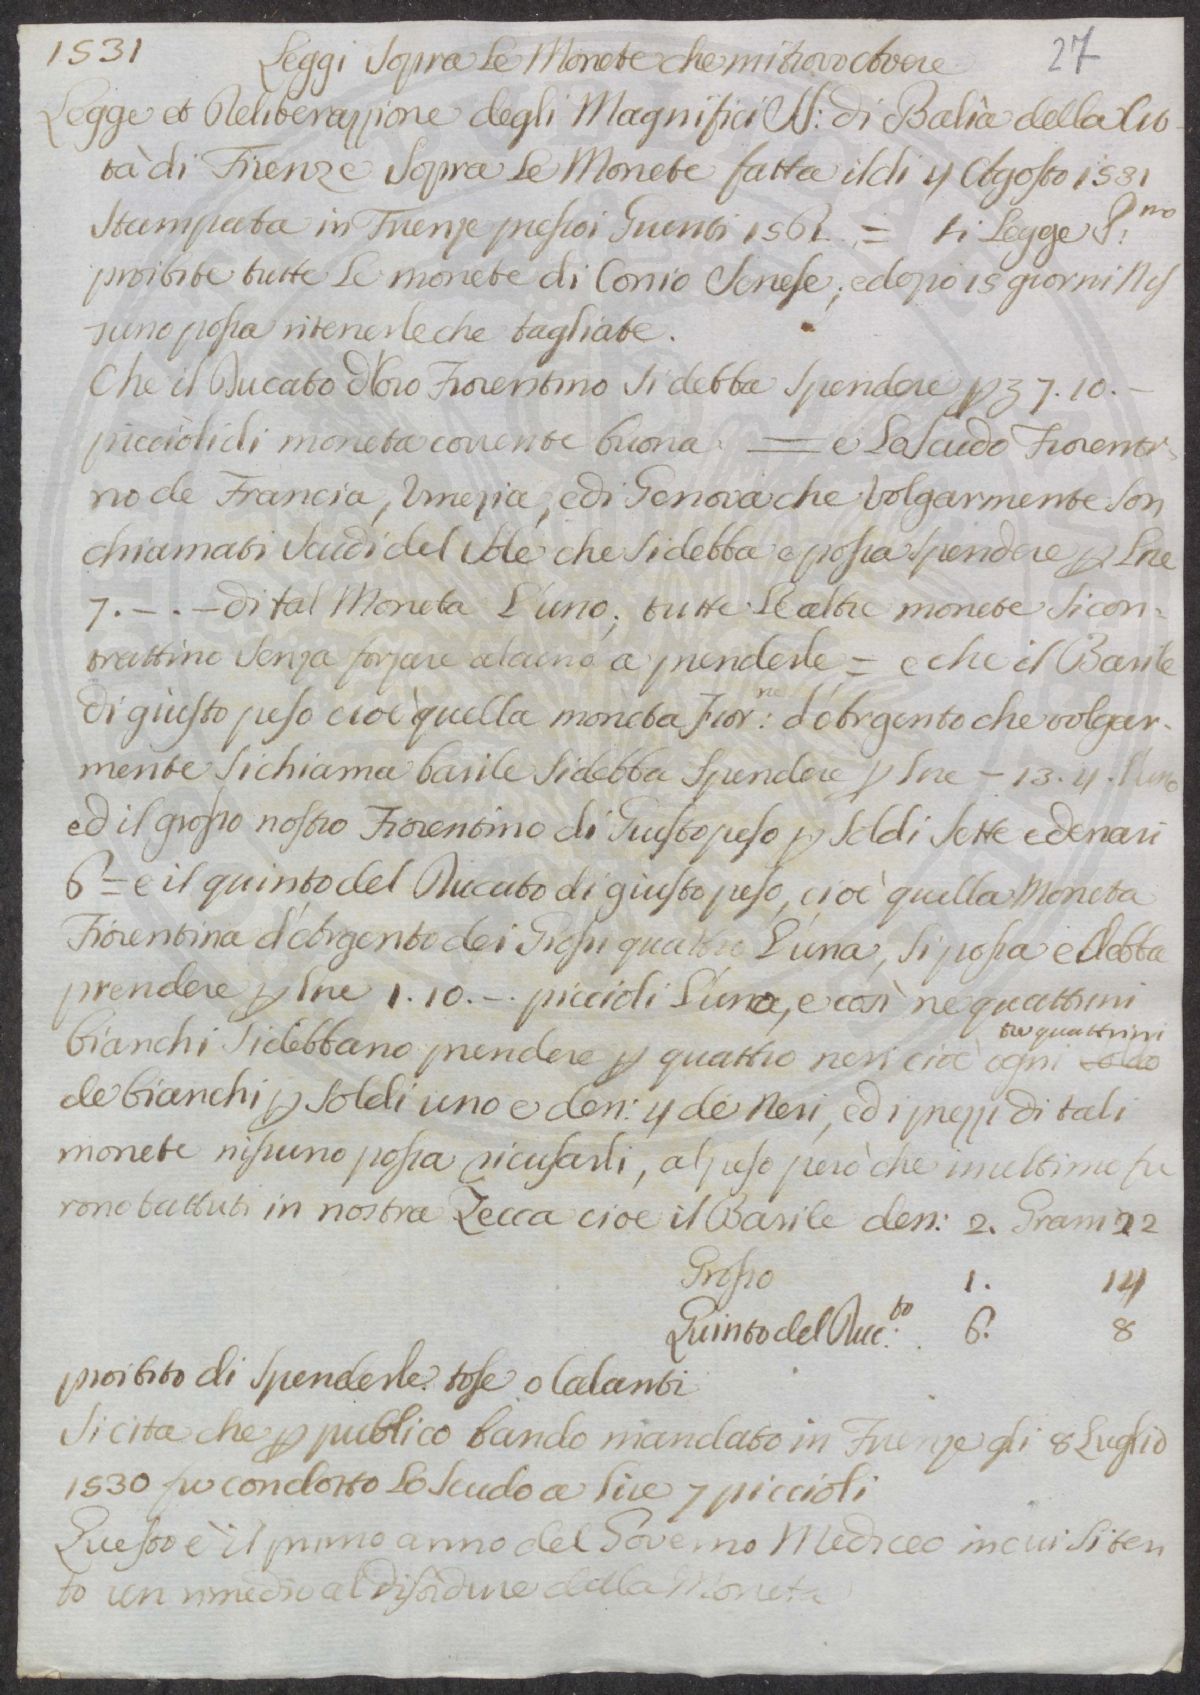 1531 Leggi Sopra Le Monete che mi trovo avere 27
Legge et Deliberazzione degli Magnifici SS: di Balìa della Cit-
tà di Firenze Sopra Le Monete fatta il dì 4 Agosto 1531
Stampata in Firenze presso i Giunti 156 = si Legge P:mo
proibite tutte Le monete di Conio Senese; e dopo 15 giorni Nes
suno possa ritenerle che tagliate.
Che il Ducato d'Oro Fiorentino si debba Spendere p 7.10.-
piccioli di moneta corrente buona = e Lo Scudo Fiorenti
no de Francia, Venezia, e di Genova che volgarmente son
chiamati Scudi del Sole che si debba e possa spendere p Lire
7.-.- di tal Moneta L'uno; tutte Le altre monete si con-
trattino Senza forzare alcuno a prenderle = e che il Barile
di giusto peso cioè quella moneta Fior:na d'Argento che volgar-
mente si chiama barile si debba Spendere p lire - 13.4. l'uno
ed il grosso nostro Fiorentino di Giusto peso p Soldi Sette e denari
6 = e il quinto del Ducato di giusto peso, cioè quella Moneta
Fiorentina d'Argento dei Grossi quattro L'una, si possa e debba
prendere p lire 1.10.-. piccioli L'una, e così ne quattrini
bianchi si debbano prendere p quattro neri cioè ogni tre quattrini
de bianchi p Soldi uno e den: 4 de Neri, ed i prezzi di tali
monete nissuno possa ricusarli, al peso però che in ultimo fu
rono battuti in nostra Zecca cioe il Barile den: 2. Grani 22
Grosso 1. 14
Quinto del Duc:to 6. 8
proibito di Spenderle tose o Calanti
Si cita che p publico bando mandato in Firenze gli 8 Luglio
1530 fu condotto Lo Scudo a lire 7 piccioli
Questo è il primo anno del Governo Mediceo in cui si ten
tò un rimedio al disordine della Moneta